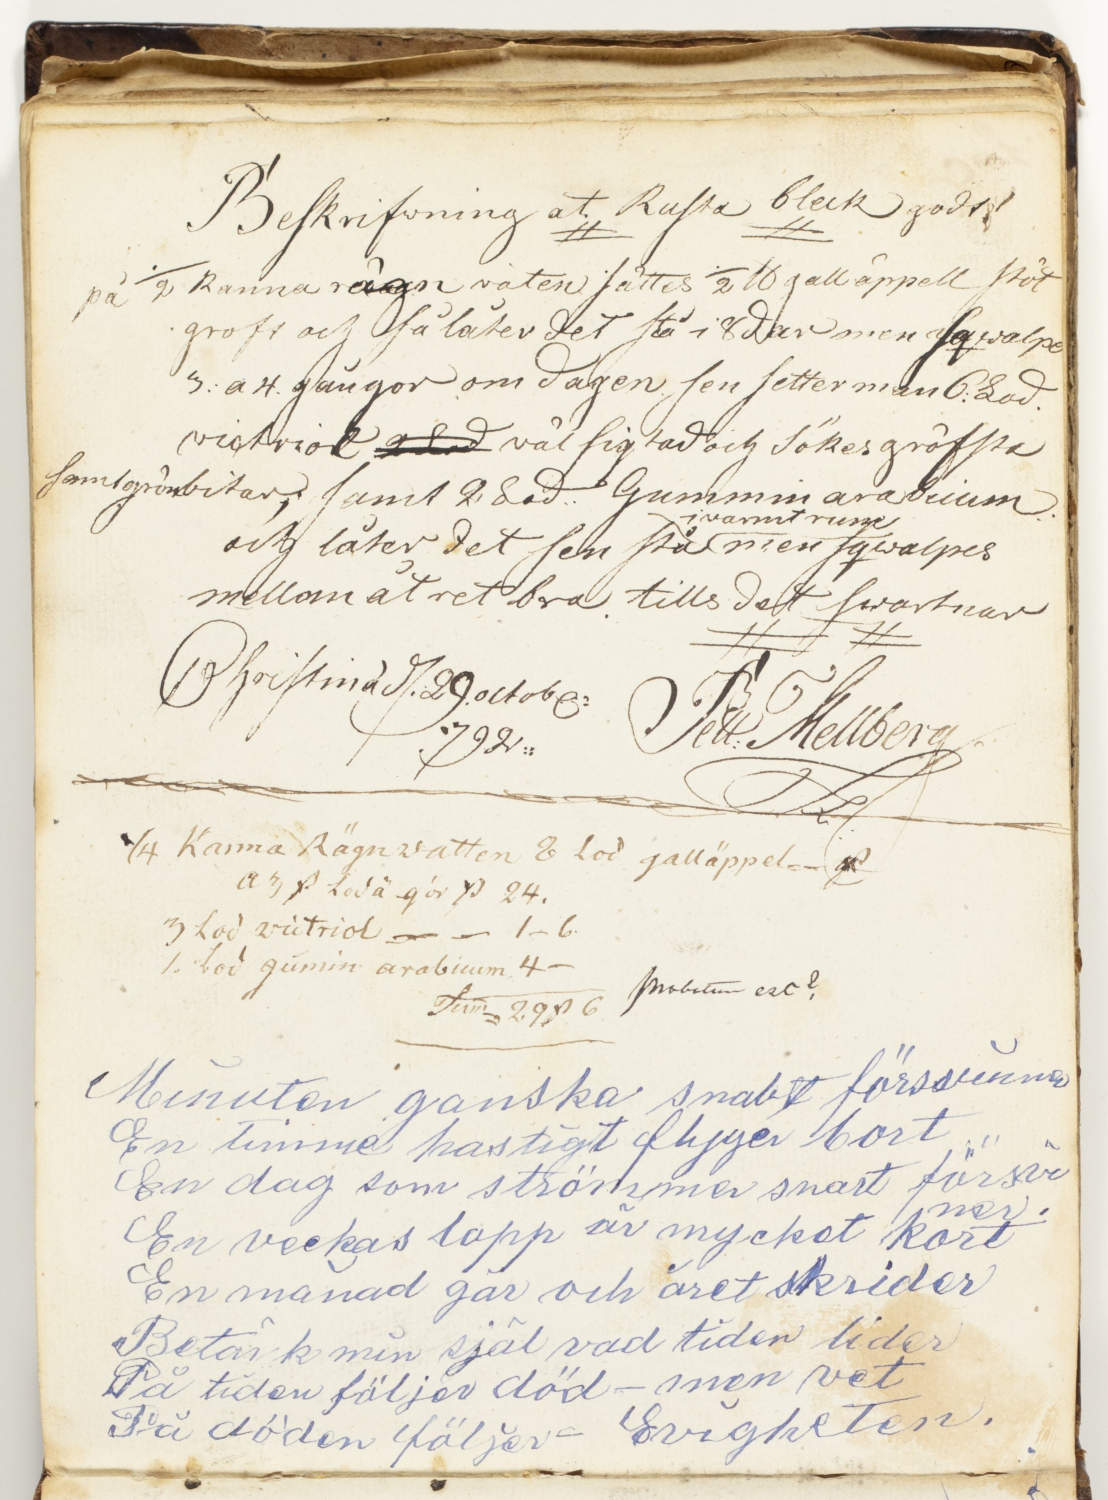 Beskrifwning at Rusta bleck gods
på 1/2 Kanna rägn vaten sättes 1/2 ℔ galläppell stöt
groft och så låter det stå i 8 dar men sqwalpe
3: a 4. gångor om dagen sen setter man 6: Lod.
victriol väl sigtad och sökes gröfsta
samt grönbitar, samt 2 Lod. Gummin arabicum
i varmt rum
och låter det sen stå men sqwalpes
mellan åt ret bra tills det swartnar
Christina d. 29 octob
792
Pett: Mellberg
1/4 Kanna Rägnvatten 8 Lod galläppel
a 3 ß Lod ä gör ß 24.
3 Lod victriol 1 - 6
1. Lod gumin arabicum 4 -
Sum 29 ß 6
probatum est?
Minuten ganska snabt försvinner
En timme hastigt flyger bort
En dag som strömmer snart försvi
ner.
En veckas lopp är mycket kort
En månad går och året skrider
Betänk min själ vad tiden lider
På tiden följer död - men vet
På döden följer - Evigheten.